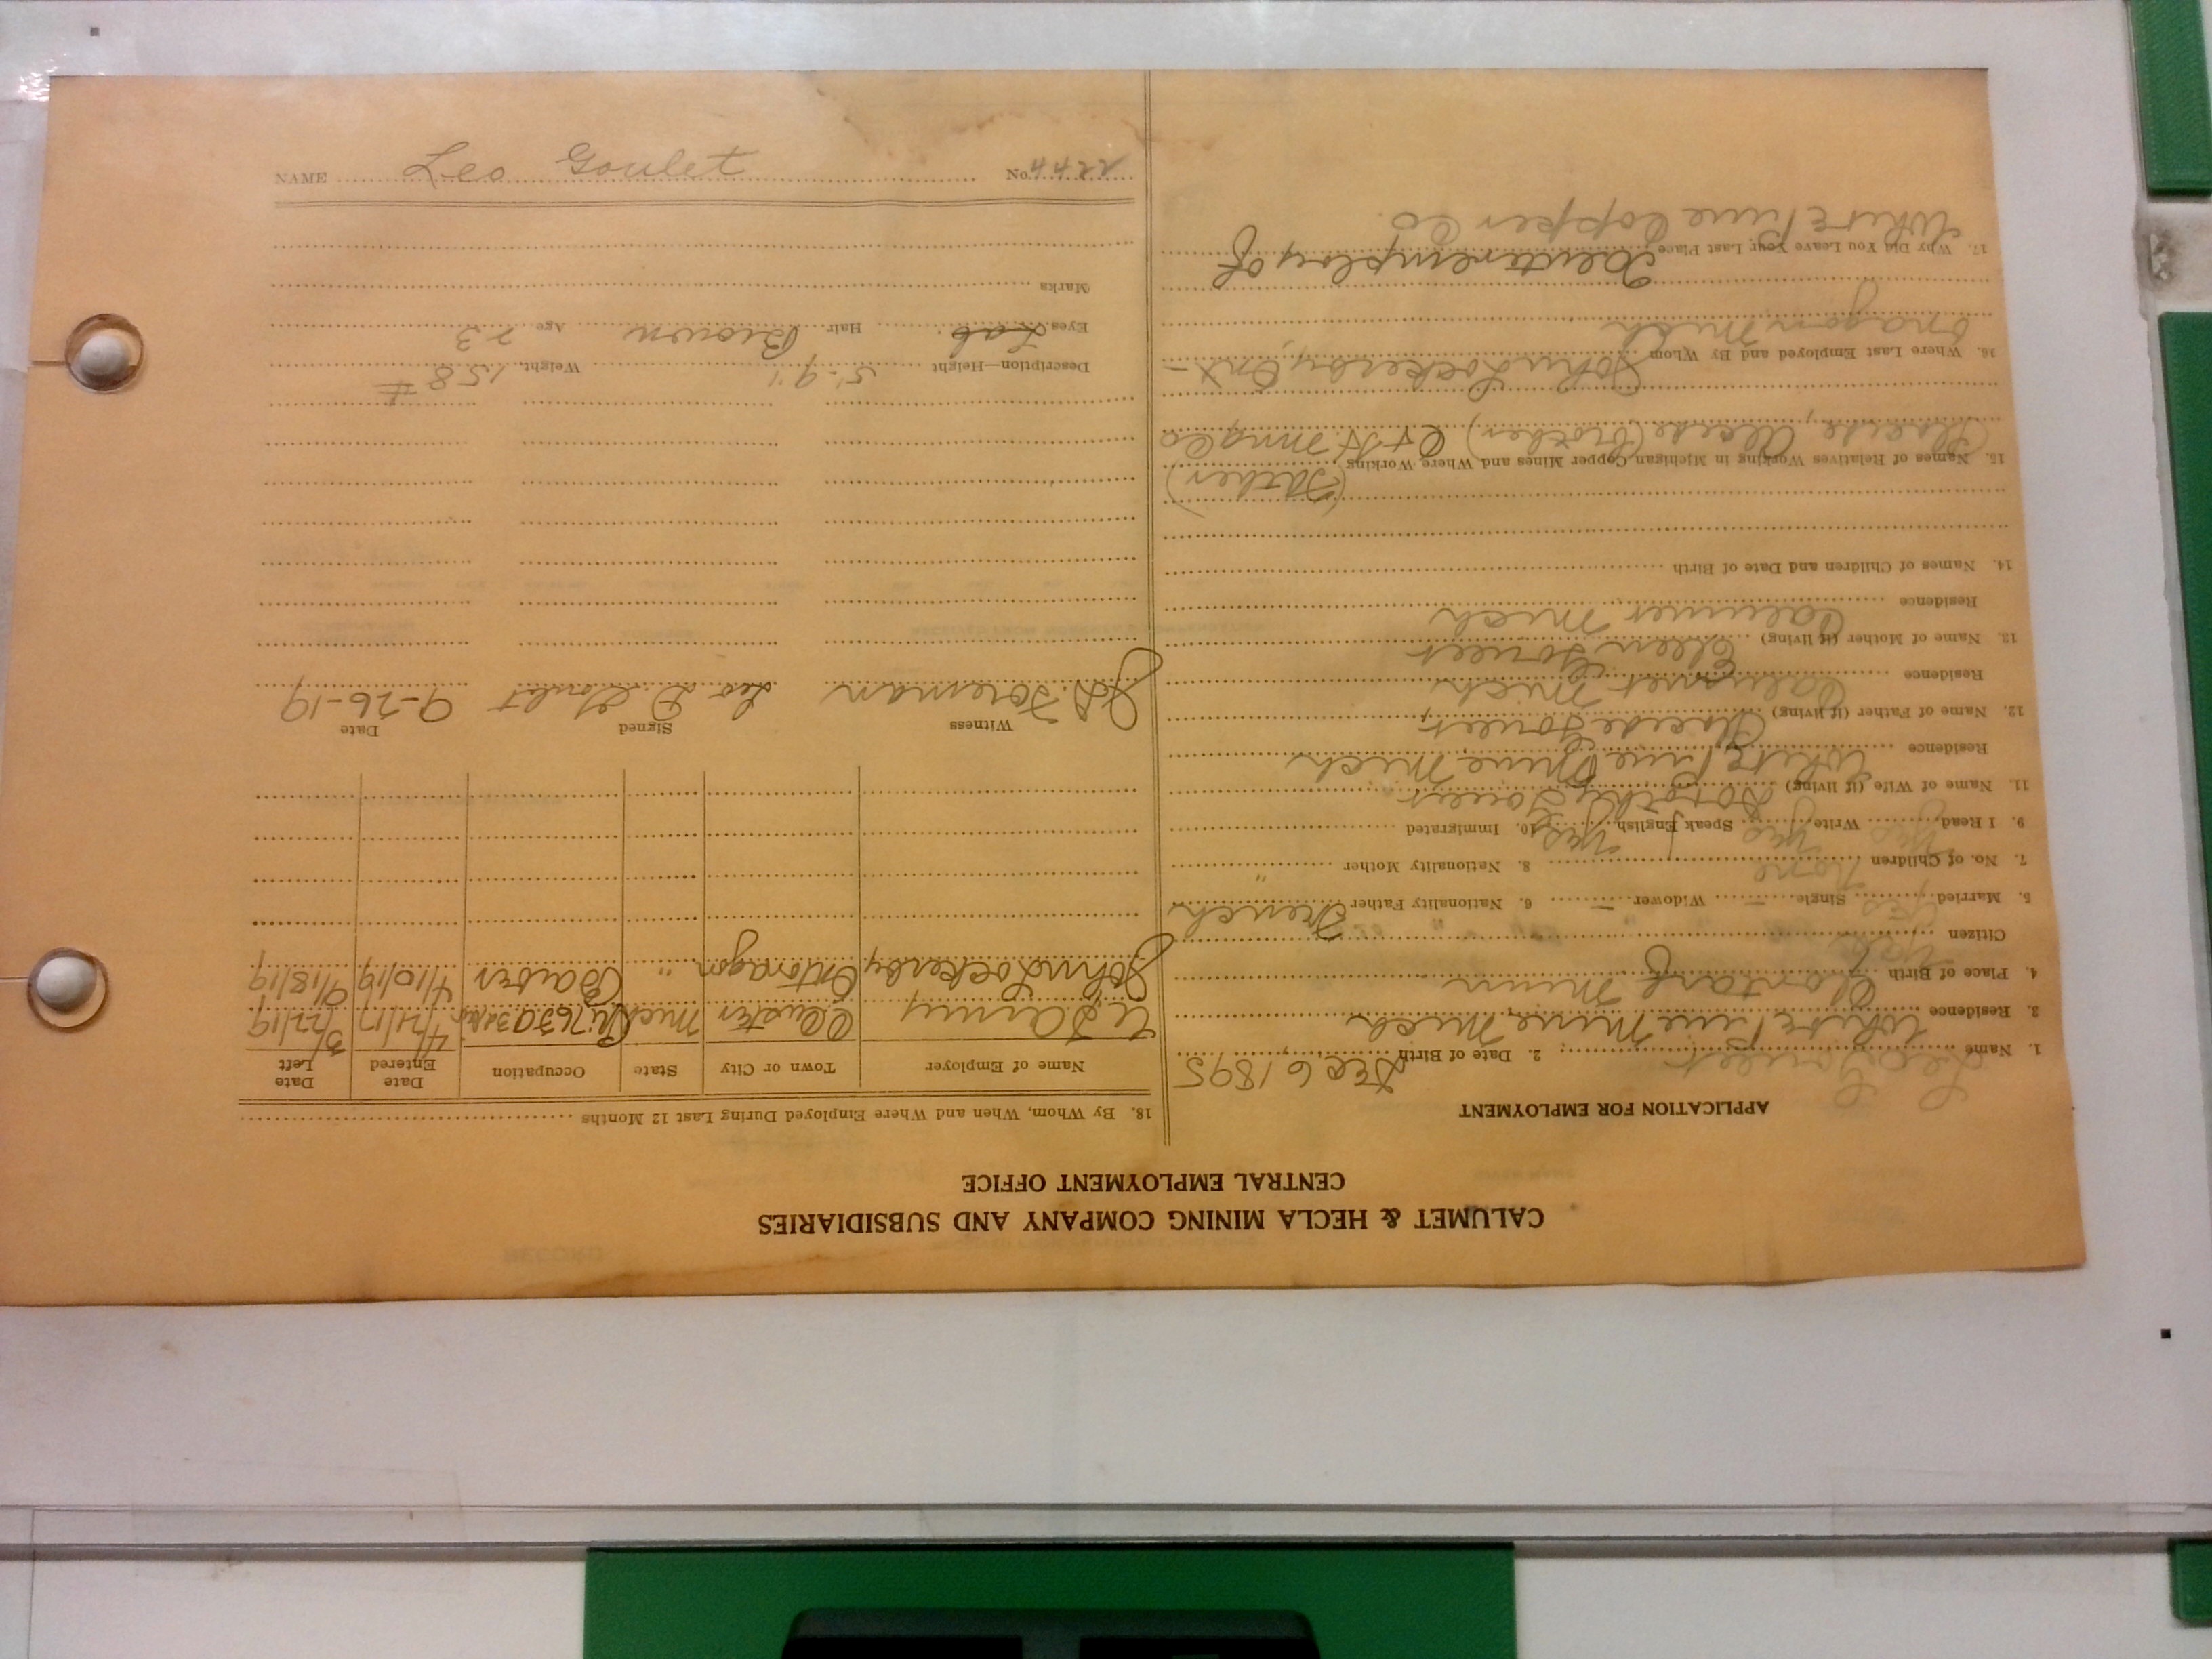 CALUMET & HECLA MINING COMPANY AND SUBSIDIARIES
CENTRAL EMPLOYMENT OFFICE
APPLICATION FOR EMPLOYMENT
1. Name Leo Goulet 2. Date of Birth Dec 6 1895
3. Residence White Pine Mine, Mich
4. Place of Birth Clontarf Minn
Citizen Yes
5. Married Yes Single — Widower — 6. Nationality Father French
7. No. of Children None 8. Nationality Mother "
9. I Read Yes Write Yes Speak English Yes 10. Immigrated
11. Name of Wife (if living) Dorothy Goulet
Residence White Pine Mine Mich
12. Name of Father (if living) Placide Goulet
Residence Calumet Mich
13. Name of Mother (if living) Ellen Goulet
Residence Calumet Mich
14. Names of Children and Date of Birth
(Father)
15. Names of Relatives Working in Michigan Copper Mines and Where Working
Placide, Alcide (Brother) C & H Mng Co
16. Where Last Employed and By Whom John Lockerby, Ont-
onagon, Mich
17. Why Did You Leave Your Last Place To enter employ of
White Pine Copper Co
18. By Whom, When and Where Employed During Last 12 Months
Name of Employer Town or City State Occupation Date Entered Date Left
U.S. Army Custer Mich 4/21/17 5/22/19
John Lockerby Ontonagon " 4/10/19 9/18/19
Witness Signed Date
J.D. Foreman Leo D. Goulet 9-26-19
Description—Height 5'-9" Weight 158 #
Eyes Hair Brown Age 23
Marks
NAME Leo Goulet No. 4422